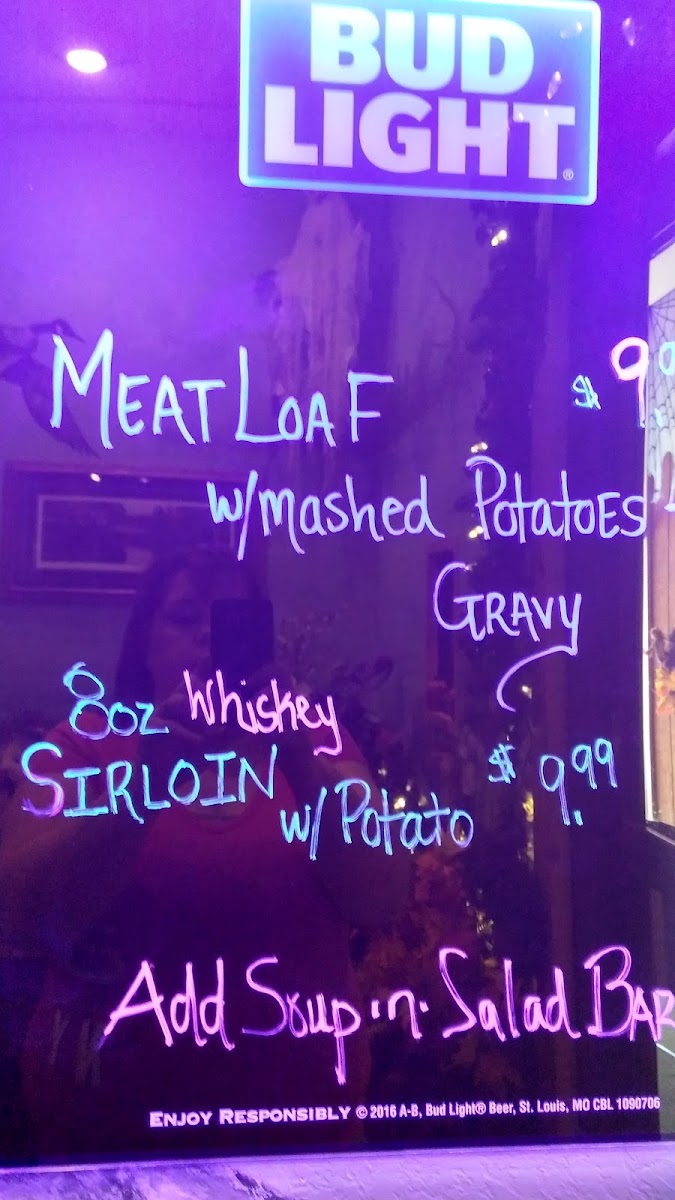 BUD
LIGHT®
MEATLOAF $9.9
w/mashed POtatOES
GRAVY
8oz Whiskey
SIRLOIN
w/ Potato $9.99
Add Soup·n·Salad BAR
ENJOY RESPONSIBLY © 2016 A-B, Bud Light® Beer, St. Louis, MO CBL 1090706